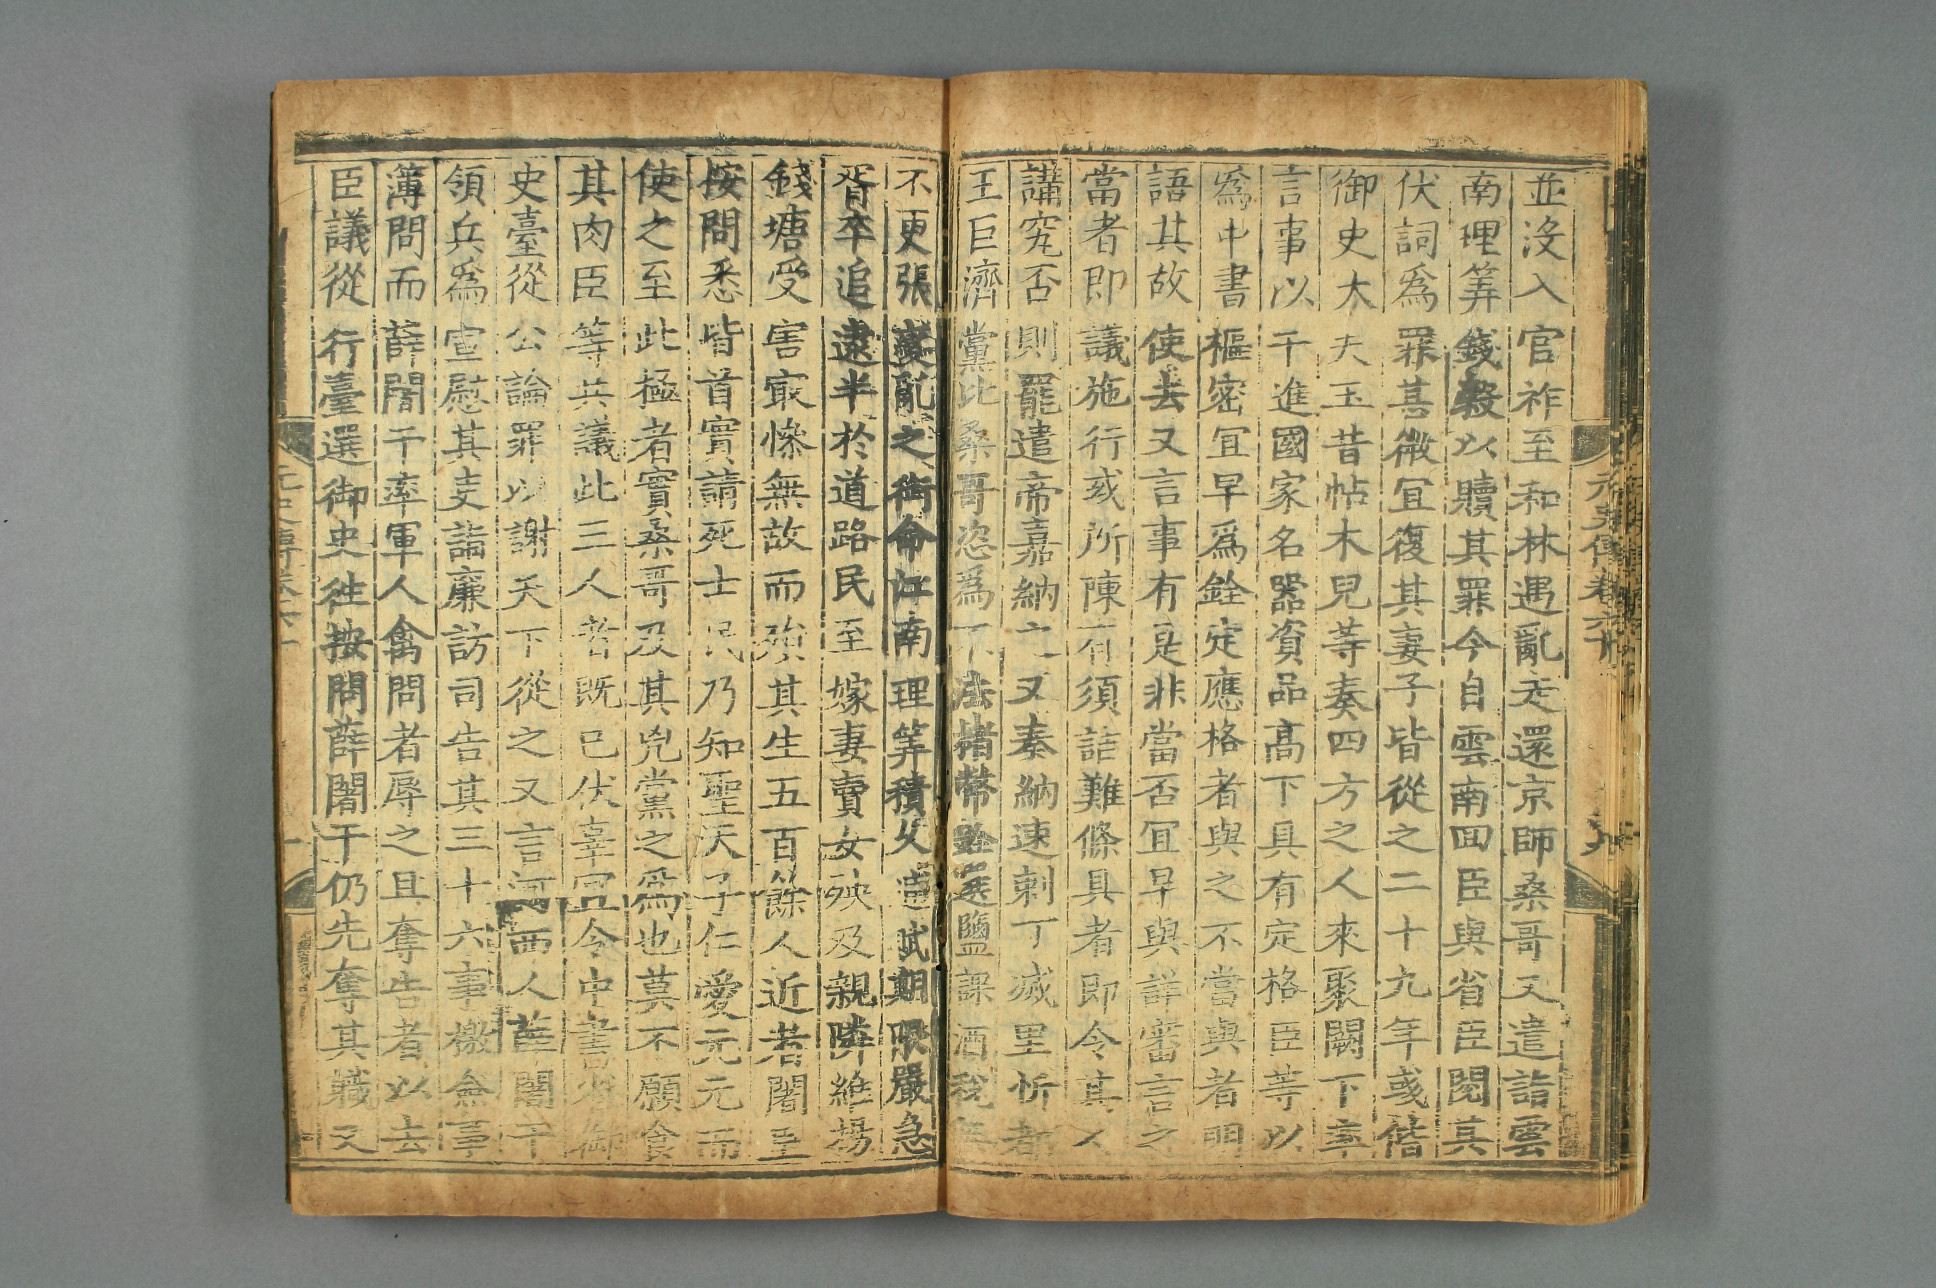 並没入官祚至和林遇亂走還京師桑哥又遣詣雲
南理筭錢穀以贖其罪今自雲南回臣與省臣閱其
伏詞爲罪甚微宜復其妻子皆從之二十九年或偕
御史大夫玉昔帖木兒等奏四方之人來聚闕下率
言事以干進國家名器資品高下具有定格臣等以
爲中書樞密宜早爲銓定應格者與之不當與者明
語其故使去又言事有是非當否宜早與詳審言之
當者即議施行或所陳有須詰難條具者即令其人
講究否則罷遣帝嘉納之又奏納速剌丁滅里忻都
王巨濟黨比桑哥恣爲不法楮幣銓選鹽課酒稅無
不更張變亂之銜命江南理筭積久逋賦期限嚴急
胥卒追逮半於道路民至嫁妻賣女殃及親隣維揚
錢塘受害㝡慘無故而殞其生五百餘人近者闍里
按問悉皆首實請死士民乃知聖天子仁愛元元而
使之至此極者實桑哥及其兇黨之爲也莫不願食
其肉臣等共議此三人者既已伏辜宜令中書省御
史臺從公論罪以謝天下從之又言河西人薛闍干
領兵爲宣慰其吏詣廉訪司告其三十六事檄僉事
簿問而薛闍干率軍人禽問者辱之且奪告者以去
臣議從行臺選御史往按問薛闍干仍先奪其職又
元史傳卷六十